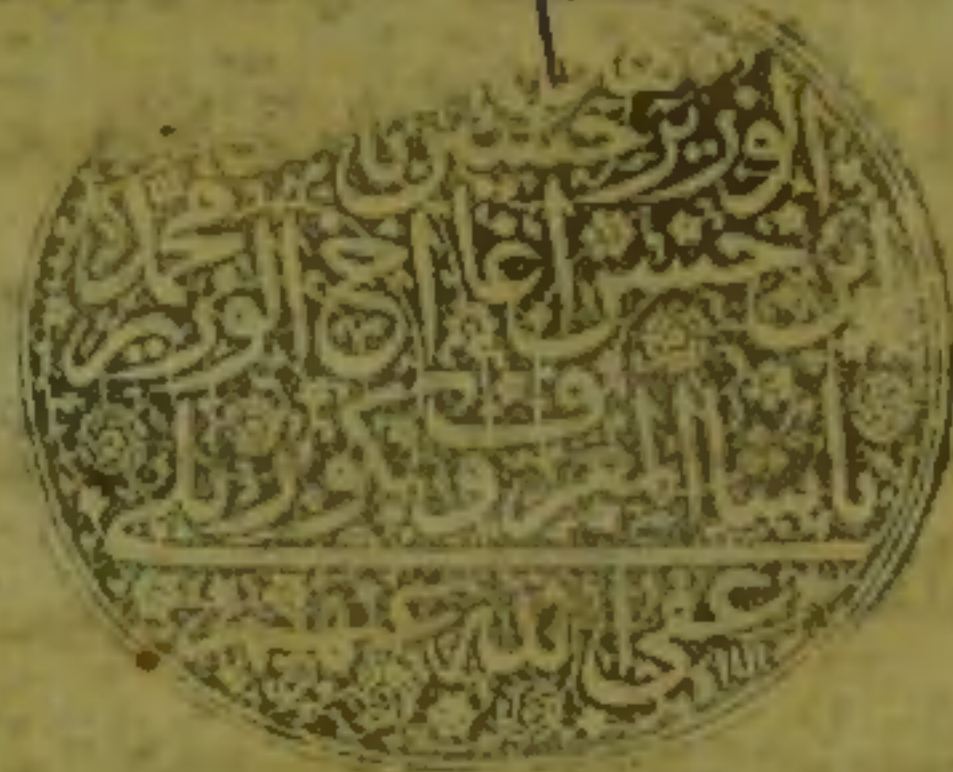 الوزير حسين با
ابن حسن اغا اخ الوزير محمد
باشا المعروف بكوبريلى
عفى الله عنهم